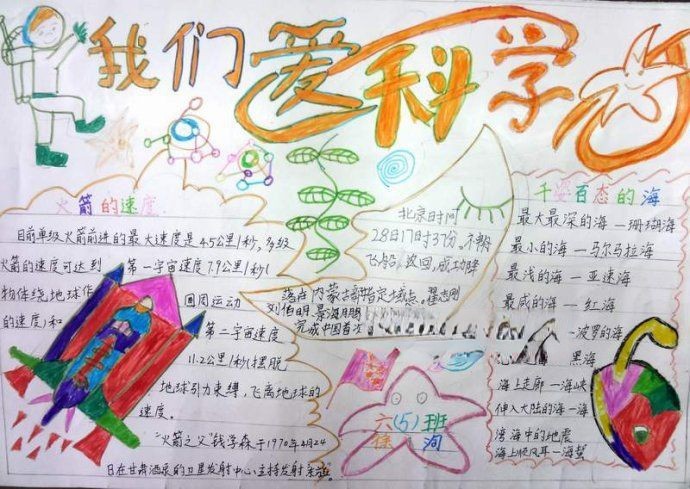 我们爱科学
火箭的速度
目前单级火箭前进的最大速度是4.5公里1秒,多级
火箭的速度可达到 第一宇宙速度7.9公里1秒(
物体绕地球作 圆周运动
的速度)和 第一宇宙速度
11.2公里1秒(摆脱
地球引力束缚,飞离地球的
速度。
“火箭之父”钱学森于1970年4月24
日在甘肃酒泉的卫星发射中心主持发射
北京时间
28日17时37份,
飞船 返回,成功降
落在内蒙古部指定地点。翟志刚
刘伯明 景海鹏
完成中国首次
六(5)班
千姿百态的海
最大最深的海—珊瑚海
最小的海—马尔马拉海
最浅的海—亚速海
最咸的海—红海
-波罗的海
黑海
海上走廊—海峡
伸入大陆的海—海
湾海中的地震
海上顺风耳—海蜇